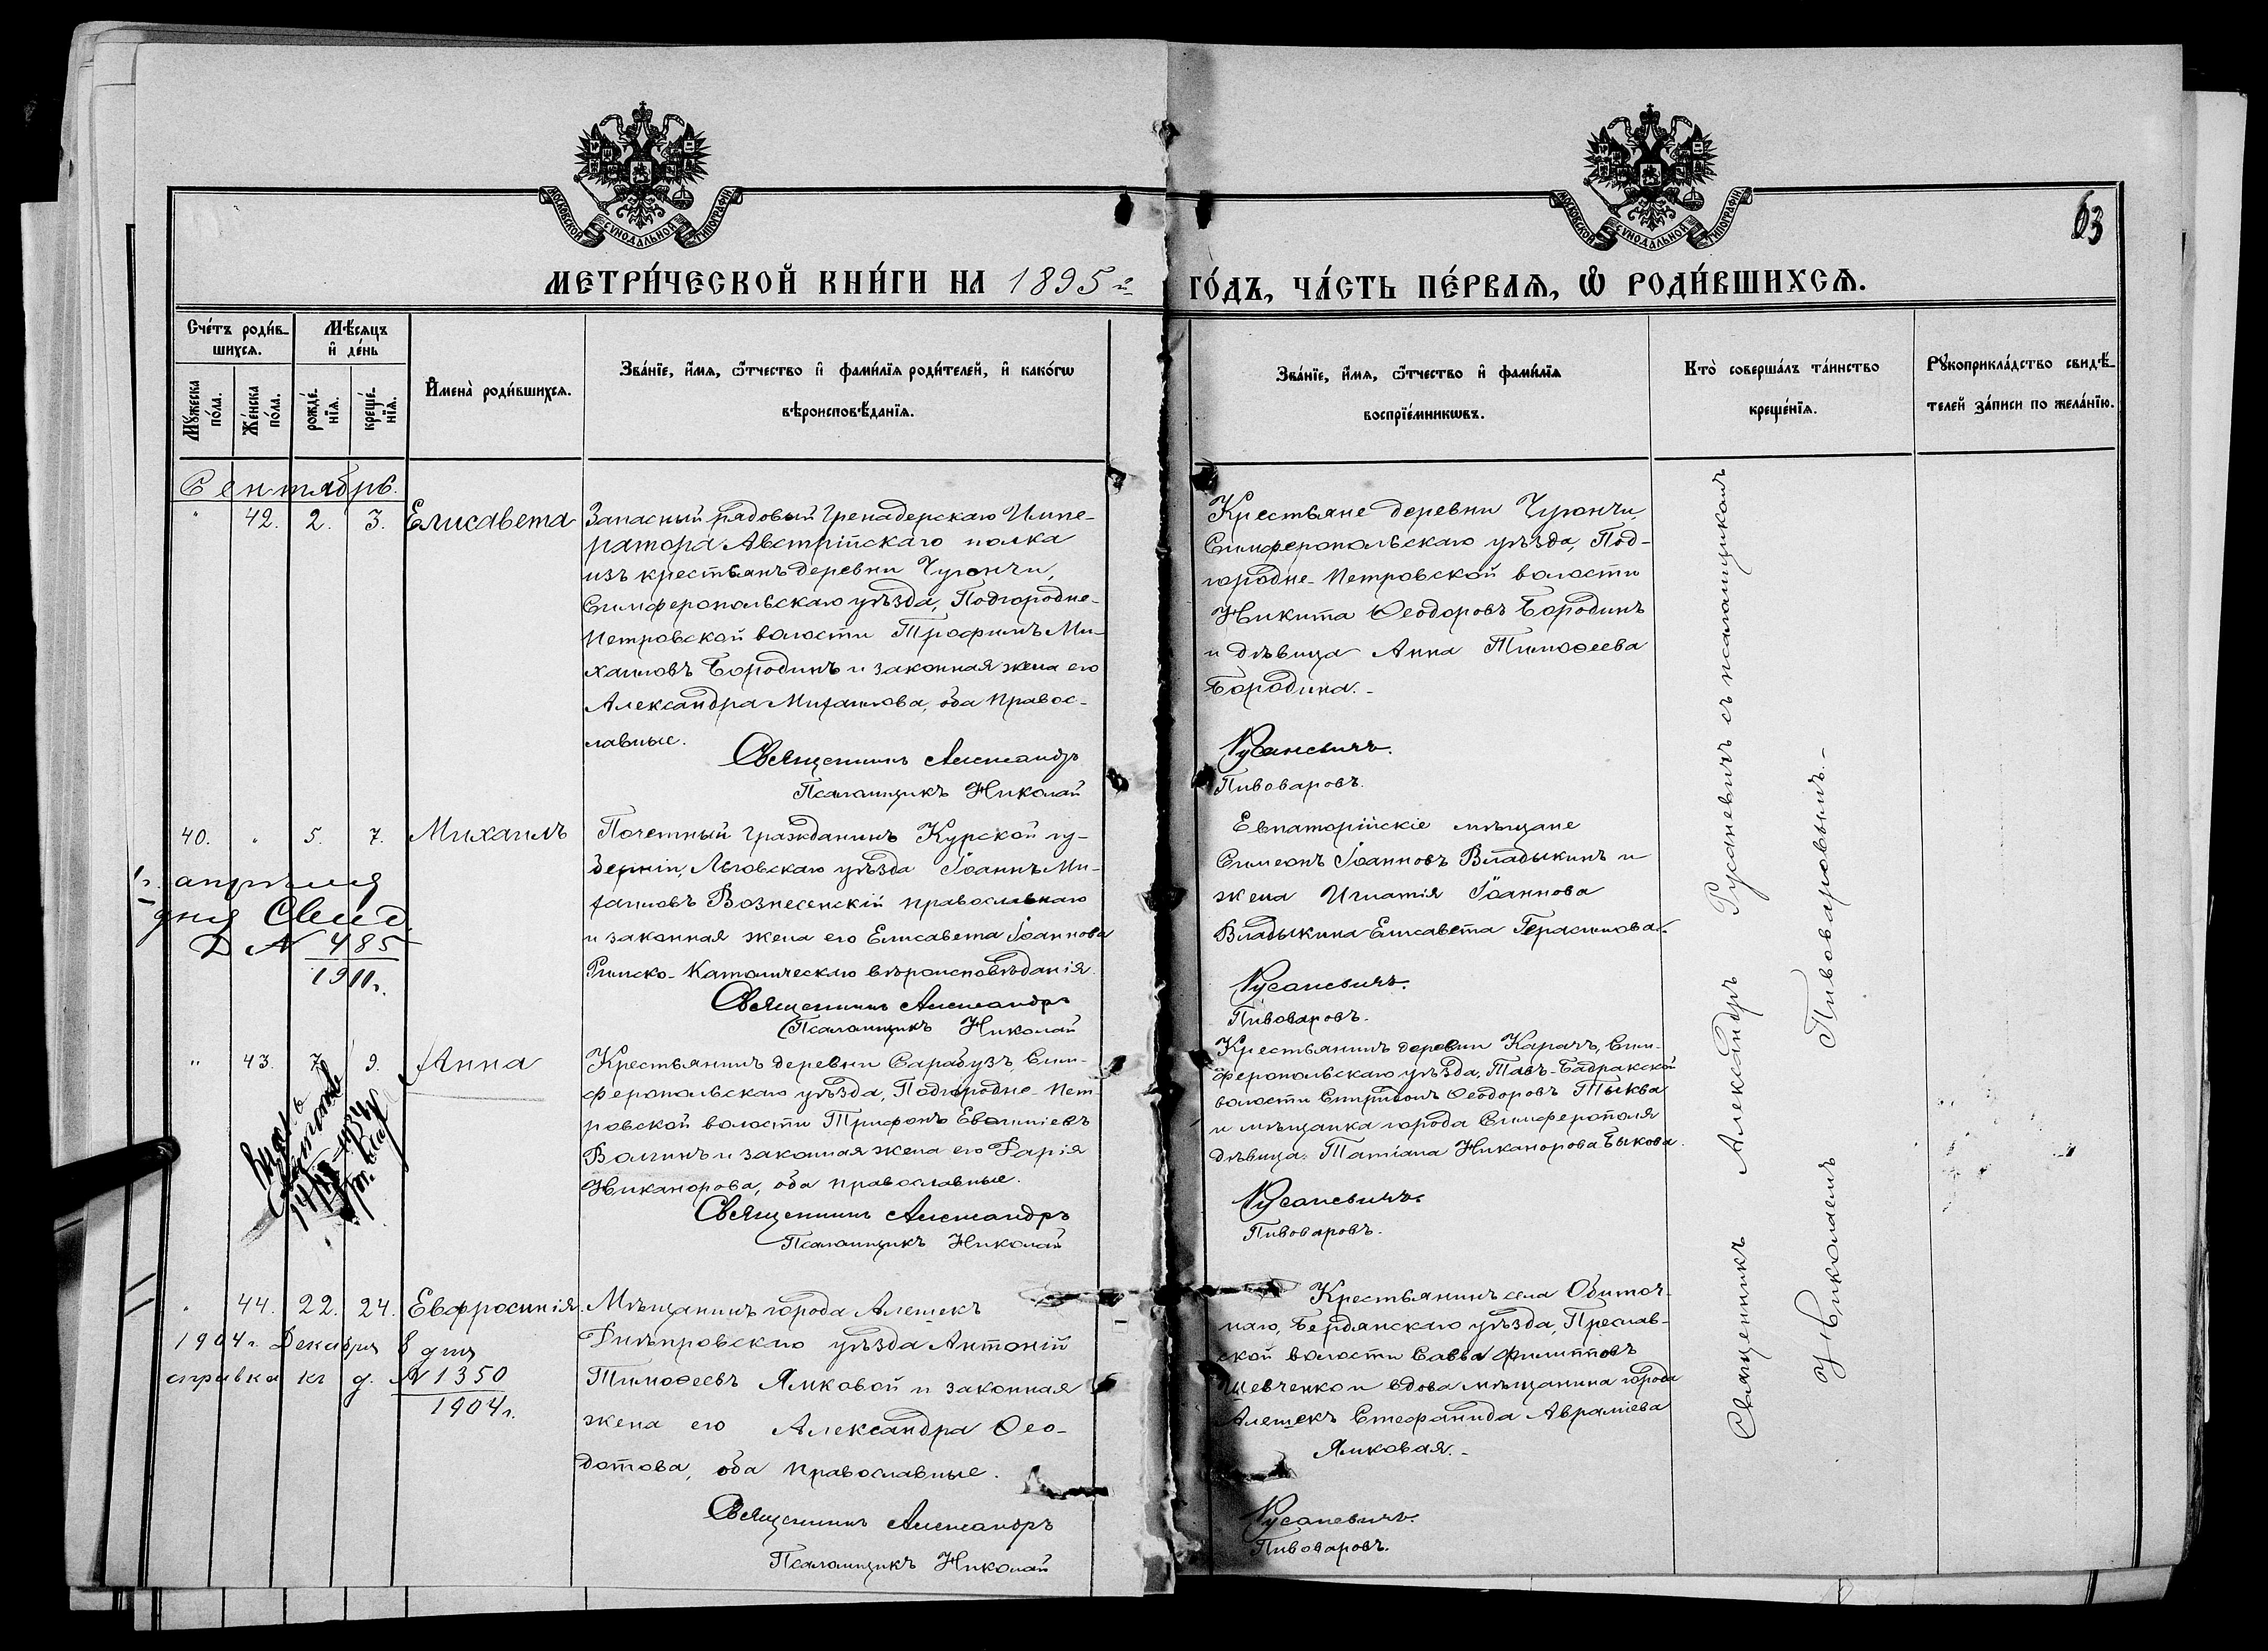 МОСКОВСКОЙ СУНОДАЛЬНОЙ ТИПОГРАФІИ
МОСКОВСКОЙ СУНОДАЛЬНОЙ ТИПОГРАФІИ
63
МЕТРИ́ЧЕСКОЙ КНИ́ГИ НА 1895 й
ГО́ДЪ, ЧА́СТЬ ПЕ́РВАѦ, Ѡ҆ РОДИ́ВШИХСѦ.
Сче́тъ роди́в-
шихсѧ.
Мѣ́сѧцъ
и҆ де́нь
Мꙋ́жеска по́ла.
Же́нска по́ла.
рожде́нїѧ.
креще́нїѧ.
И҆мена̀ роди́вшихсѧ.
Зва́нїе, и҆́мѧ, ѻ҆́тчество и҆ фами́лїѧ роди́телей, и҆ како́гѡ
вѣроисповѣ́данїѧ.
Зва́нїе, и҆́мѧ, ѻ҆́тчество и҆ фами́лїѧ
воспрїе́мникѡвъ.
Кто̀ соверша́лъ та́инство
креще́нїѧ.
Рꙋкоприкла́дство свидѣ́-
телей за́писи по жела́нїю.
Сентябрь.
" 42. 2. 3. Елисавета
Запасный рядовый Гренадерскаго Импе-
ратора Австрійскаго полка
изъ крестьянъ деревни Чуюнчи,
Симферопольскаго уѣзда, Подгородне-
Петровской волости Трофимъ Ми-
хаиловъ Бородинъ и законная жена его
Александра Михаилова, оба правос-
лавные.
Священникъ Александръ
Псаломщикъ Николай
Крестьяне деревни Чуюнчи,
Симферопольскаго уѣзда, Под-
городне-Петровской волости
Никита Ѳеодоровъ Бородинъ
и дѣвица Анна Тимоѳеева
Бородина.-
Русаневичъ.
Пивоваровъ.
40. " 5. 7. Михаилъ
апрѣля
дня Свид.
№ 485
1911 г.
Почетный гражданинъ Курской гу-
берніи, Льговскаго уѣзда Іоаннъ Ми-
хаиловъ Вознесенскій православнаго
и законная жена его Елисавета Іоаннова
Римско-Католическаго вѣроисповѣданія.
Священникъ Александръ
Псаломщикъ Николай
Евпаторійскіе мѣщане
Симеонъ Іоанновъ Владыкинъ и
жена Игнатія Іоаннова
Владыкина Елисавета Герасимова.
Русаневичъ.
Пивоваровъ.
" 43. 7. 9. Анна
Крестьянинъ деревни Сарабузъ, Сим-
феропольскаго уѣзда, Подгородне-Пет-
ровской волости Трифонъ Евѳиміевъ
Волгинъ и законная жена его Дарія
Никанорова, оба православные.
Священникъ Александръ
Псаломщикъ Николай
Крестьянинъ деревни Карачъ, Сим-
феропольскаго уѣзда, Тавъ-Бадракской
волости Спиридонъ Ѳеодоровъ Тыква
и мѣщанка города Симферополя
дѣвица Татіана Никанорова Быкова.
Русаневичъ.
Пивоваровъ.
" 44. 22. 24. Евфросинія.
1904 г. Декабря 8 дня
справка за № 1350
1904 г.
Мѣщанинъ города Алешекъ
Днѣпровскаго уѣзда Антоній
Тимоѳеевъ Ямковой и законная
жена его Александра Ѳео-
дотова, оба православные.
Священникъ Александръ
Псаломщикъ Николай
Крестьянинъ села Обиточ-
наго, Бердянскаго уѣзда, Преслав-
ской волости Савва Филипповъ
Шевченко и вдова мѣщанина города
Алешекъ Стефанида Авраміева
Ямковая.-
Русаневичъ.
Пивоваровъ.
Священникъ Александръ Русаневичъ съ псаломщикомъ
Николаемъ Пивоваровымъ.-